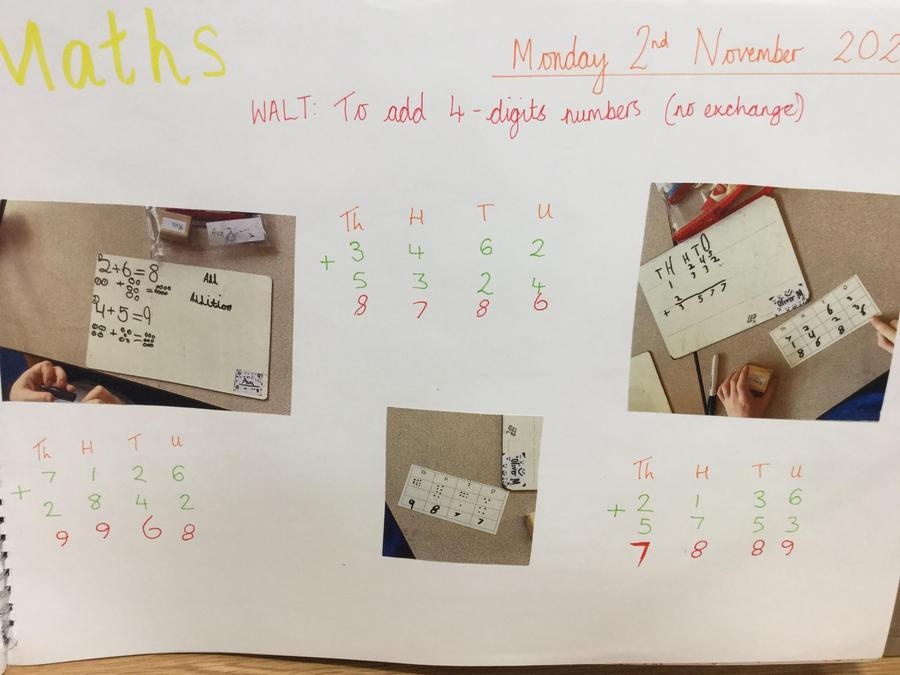 Maths
Monday 2nd November 202
WALT: To add 4-digits numbers (no exchange)
Th H T U
+ 3 4 6 2
5 3 2 4
8 7 8 6
2+6=8
4+5=9
All
Addition
Ava
TH H T O
Oliver M
Th H T O
9 8 7 7
Oliver M
Th H T U
+ 7 1 2 6
2 8 4 2
9 9 6 8
Th H T U
+ 2 1 3 6
5 7 5 3
7 8 8 9